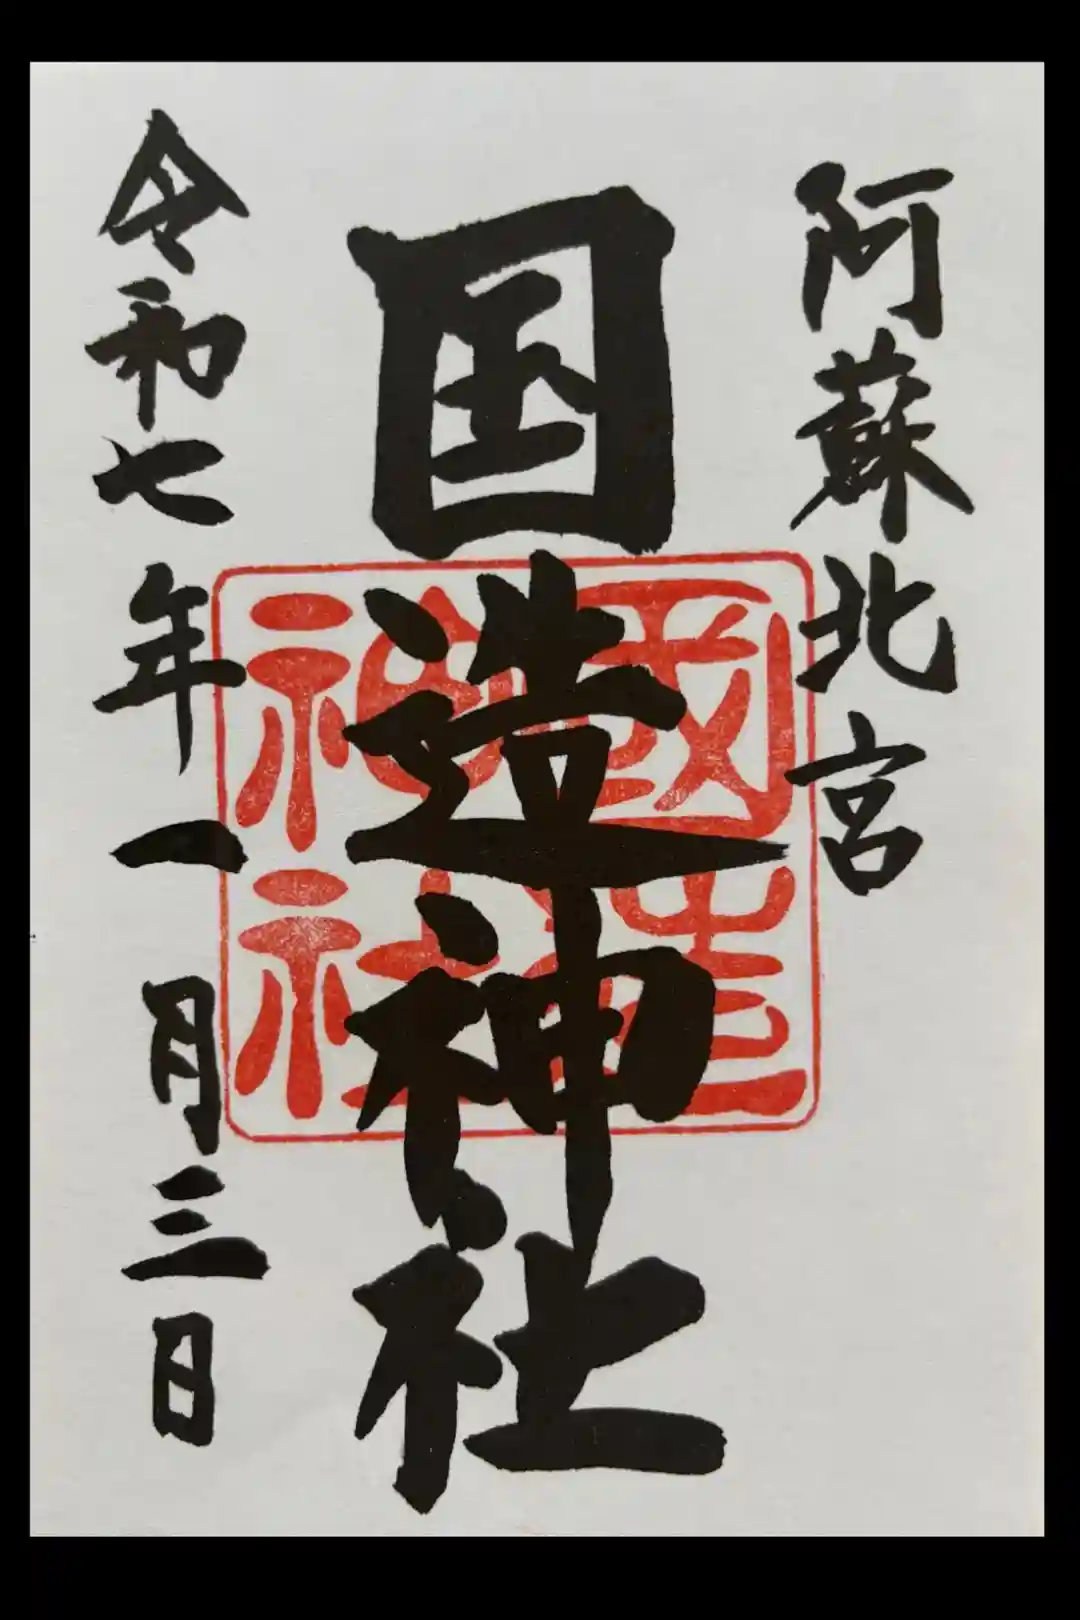 阿蘇北宮
国造神社
國造
神社
令和七年一月三日